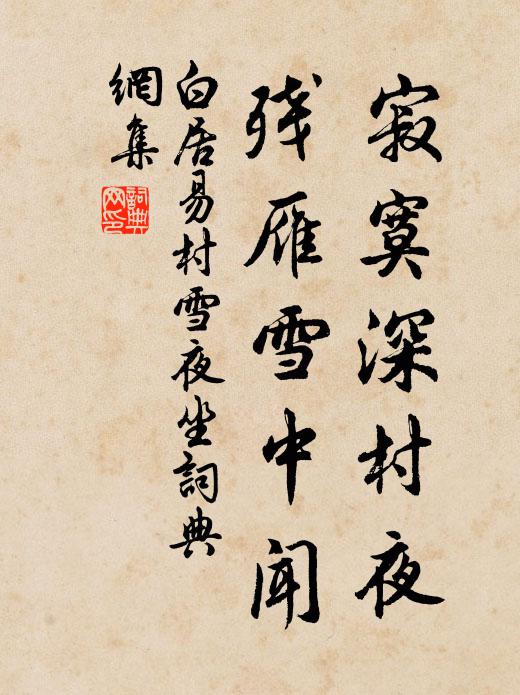 寂寞深村夜
残雁雪中闻
白居易村雪夜坐詞典
網集
詞典网印